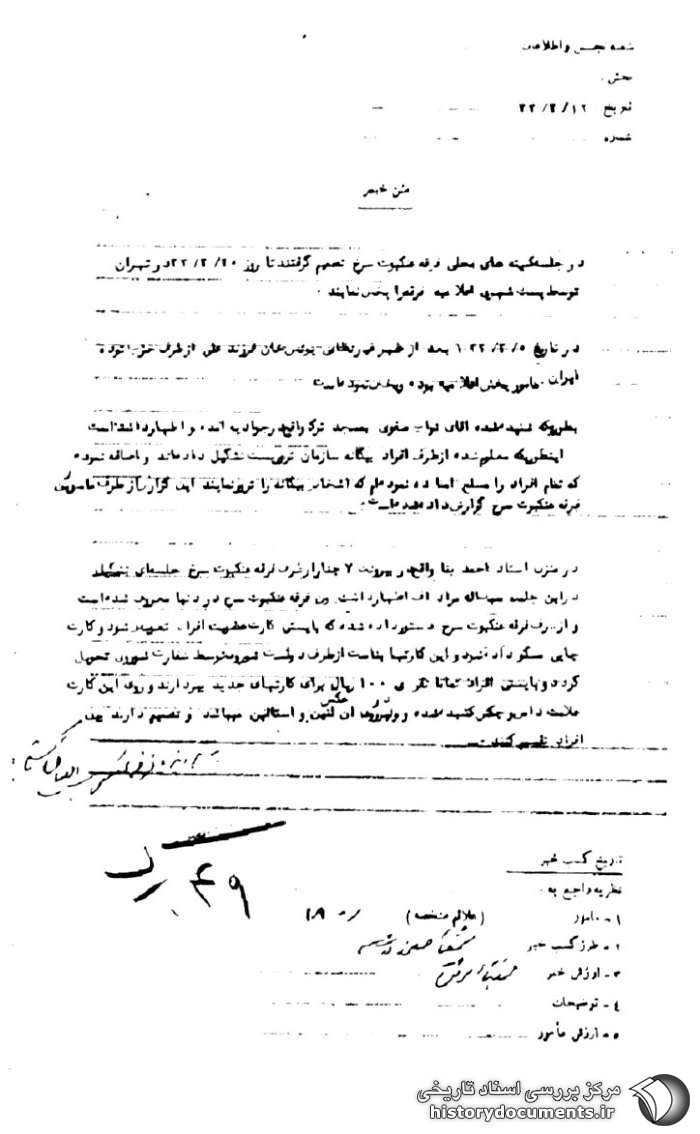 شعبه تجسس و اطلاعات
بخش
تاریخ ۳۳/۲/۱۲
شماره
متن خبر
در جلسه کمیته های محلی فرقه عنکبوت سرخ تصمیم گرفتند تا روز ۳۳/۲/۲۰ در تهران
توسط پست شهری اعلامیه فرقه را پخش نمایند.
در تاریخ ۳۳/۲/۵ بعد از ظهر یونس خان فرزند علی از طرف حزب توده
ایران مامور پخش اعلامیه بوده و پخش نموده است
بطوریکه شنیده شده آقای نواب صفوی بمسجد ترک واقع در جوادیه آمده و اظهار داشته است
اینطوریکه معلوم شده از طرف افراد بیگانه سازمان تروریست تشکیل داده اند و اضافه نموده
که تمام افراد را مسلح آماده نموده ام که اشخاص بیگانه را ترور نمایند این گزارش از طرف مامورین
فرقه عنکبوت سرخ گزارش داده شده است.
در منزل استاد احمد بنا واقع در بیرون ۷ چنار از طرف فرقه عنکبوت سرخ جلسه ای تشکیل
در این جلسه اظهار داشت فرقه عنکبوت سرخ در دنیا معروف شده است
و از طرف فرقه عنکبوت سرخ دستور داده شده که بایستی کارت عضویت افراد تعویض شود و کارت
چاپی مسکو داده شود و این کارتها بناست از طرف دولت شوروی توسط سفارت شوروی تحویل
گردد و بایستی افراد تماما نفری ۱۰۰ ریال برای کارتهای جدید بپردازند و روی این کارت
علامت داس و چکش کشیده شده و در روی آن عکس لنین و استالین میباشد و تصمیم دارند بین
افراد تقسیم کنند.
۴۹
تاریخ کسب خبر
نظریه راجع به
۱- مامور (علائم مشخصه) ۱۸
۲- طرز کسب خبر
۳- ارزش خبر
۴- توضیحات
۵- ارزش مأمور
مرکز بررسی اسناد تاریخی
historydocuments.ir